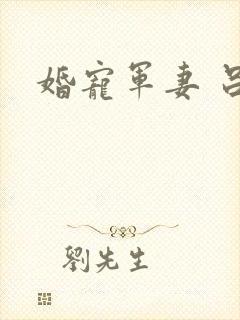 婚寵軍妻 呂
劉先生